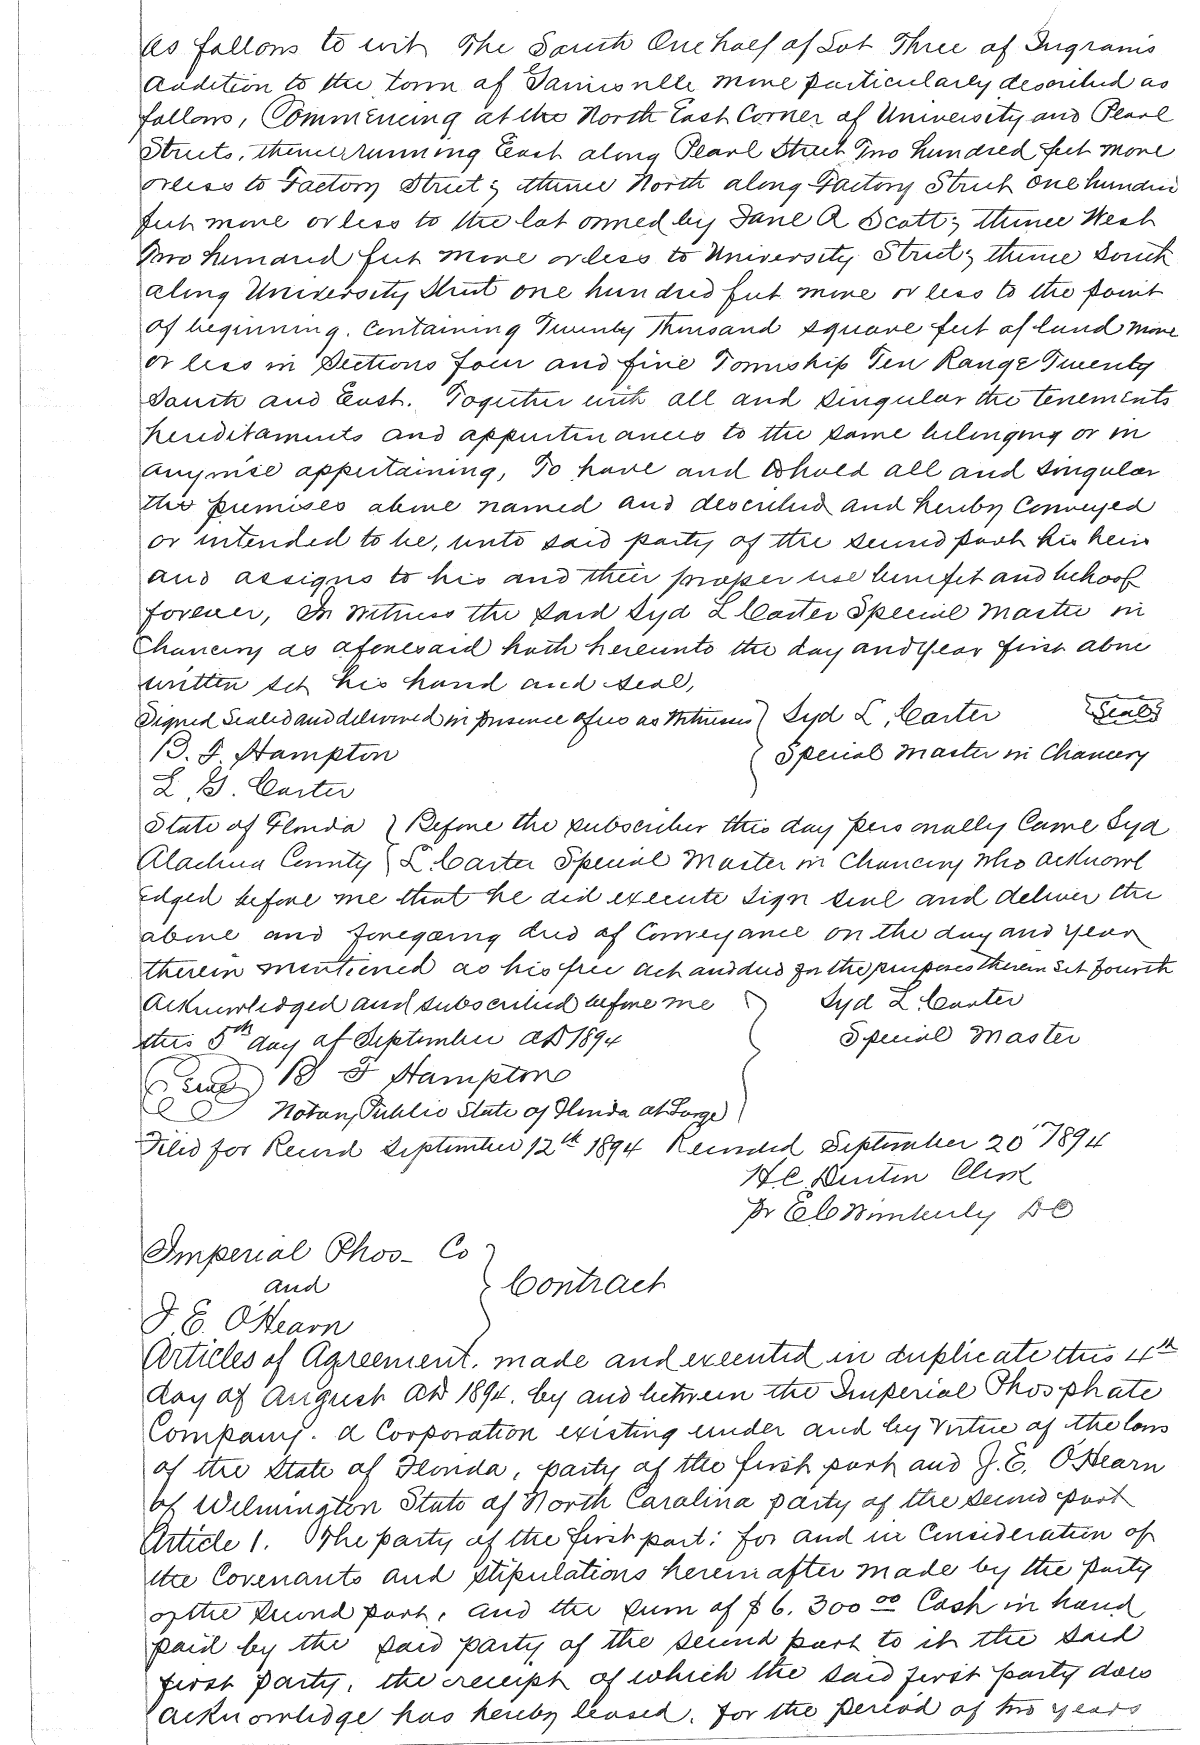 as follows to wit, The South One half of Lot Three of Ingrams
addition to the town of Gainesville more particularly described as
follows, Commencing at the North East Corner of University and Pearl
Streets, thence running East along Pearl Street Two hundred feet more
or less to Factory Street; thence North along Factory Street one hundred
feet more or less to the lot owned by Jane A Scott; thence West
Two hundred feet more or less to University Street; thence South
along University Street one hundred feet more or less to the point
of beginning. Containing Twenty Thousand square feet of land more
or less in Sections four and five Township Ten Range Twenty
South and East. Together with all and singular the tenements
hereditaments and appurtenances to the same belonging or in
anywise appertaining, To have and to hold all and singular
the premises above named and described and hereby conveyed
or intended to be, unto said party of the second part his heirs
and assigns to his and their proper use benefit and behoof
forever, In Witness the said Syd L Carter Special Master in
Chancery as aforesaid hath hereunto the day and year first above
written set his hand and seal,
Signed Sealed and delivered in presence of us as Witnesses } Syd L. Carter Seal
B. F. Hampton Special Master in Chancery
L. G. Carter
State of Florida } Before the subscriber this day personally Came Syd
Alachua County } L. Carter Special Master in Chancery who acknowl
edged before me that he did execute sign seal and deliver the
above and foregoing deed of Conveyance on the day and year
therein mentioned as his free act and deed for the purposes therein set fourth
Acknowledged and subscribed before me } Syd L. Carter
this 5th day of September AD 1894 Special Master
Seal B F Hampton
Notary Public State of Florida at Large
Filed for Record September 12th 1894 Recorded September 20" 1894
H.C. Denton Clerk
Pr E C Wimberly D C
Imperial Phos- Co
and } Contract
J. E. O'Hearn
Articles of Agreement. made and executed in duplicate this 4th
day of August AD 1894. by and between the Imperial Phosphate
Company. a Corporation existing under and by Virtue of the laws
of the State of Florida, party of the first part and J. E. O'Hearn
of Wilmington State of North Carolina party of the second part
Article 1. The party of the first part: for and in Consideration of
the Covenants and stipulations herein after made by the party
of the second part, and the sum of $6.300 00 Cash in hand
paid by the said party of the second part to it the said
first party, the receipt of which the said first party does
acknowledge has hereby leased. for the period of two years